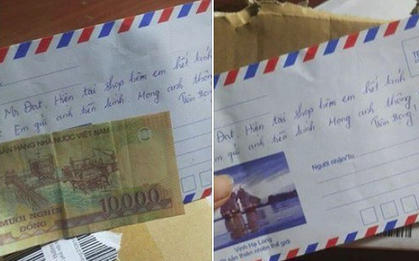 Mr Đạt, Hiện tại shop bên em hết kính
Em gửi anh tiền kính Mong anh thông
NGÂN HÀNG NHÀ NƯỚC VIỆT NAM
MƯỜI NGHÌN
ĐỒNG
10000
Đạt, Hiện tại shop bên em hết kính
gửi anh tiền kính Mong anh thông
Người nhận/To:
Vịnh Hạ Long
sản thiên nhiên thế giới